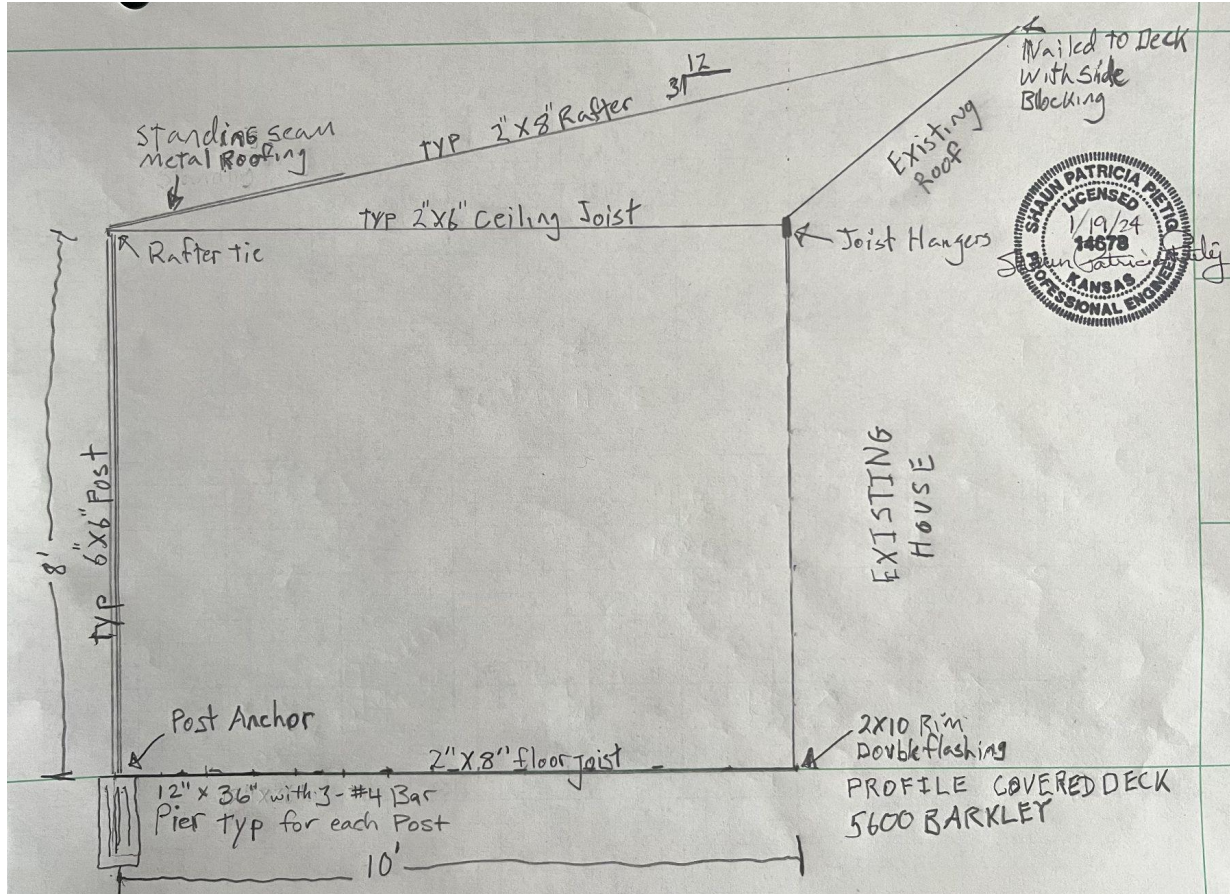 Nailed to Deck
With Side
Blocking
12
3
TYP 2"X8" Rafter
Standing seam
Metal Roofing
Existing
Roof
TYP 2"X6" Ceiling Joist
Rafter Tie
Joist Hangers
SHAUN PATRICIA PIETIG
LICENSED
1/19/24
14678
KANSAS
PROFESSIONAL ENGINEER
8'
TYP 6"X6" Post
EXISTING
HOUSE
Post Anchor
2"X8" floor joist
2X10 Rim
Double flashing
12" x 36" with 3-#4 Bar
Pier TYP for each Post
PROFILE COVERED DECK
5600 BARKLEY
10'